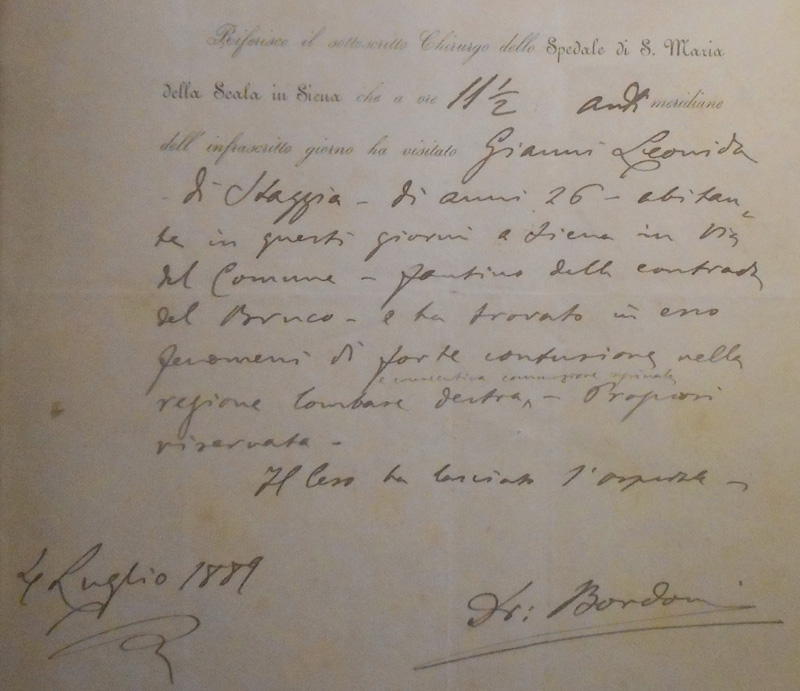 Riferisce il sottoscritto Chirurgo dello Spedale di S. Maria
della Scala in Siena che a ore 11 1/2 anti meridiane
dell' infrascritto giorno ha visitato Gianni Leonida
- di Staggia - di anni 26 - abitan-
te in questi giorni a Siena in Via
del Comune - fantino della contrada
del Bruco - e ha trovato in esso
fenomeni di forte contusione nella
e consecutiva commozione spinale
regione lombare destra, -
riservata -
Il leso ha lasciato l'ospedale -
4 Luglio 1889
Dr: Bordoni